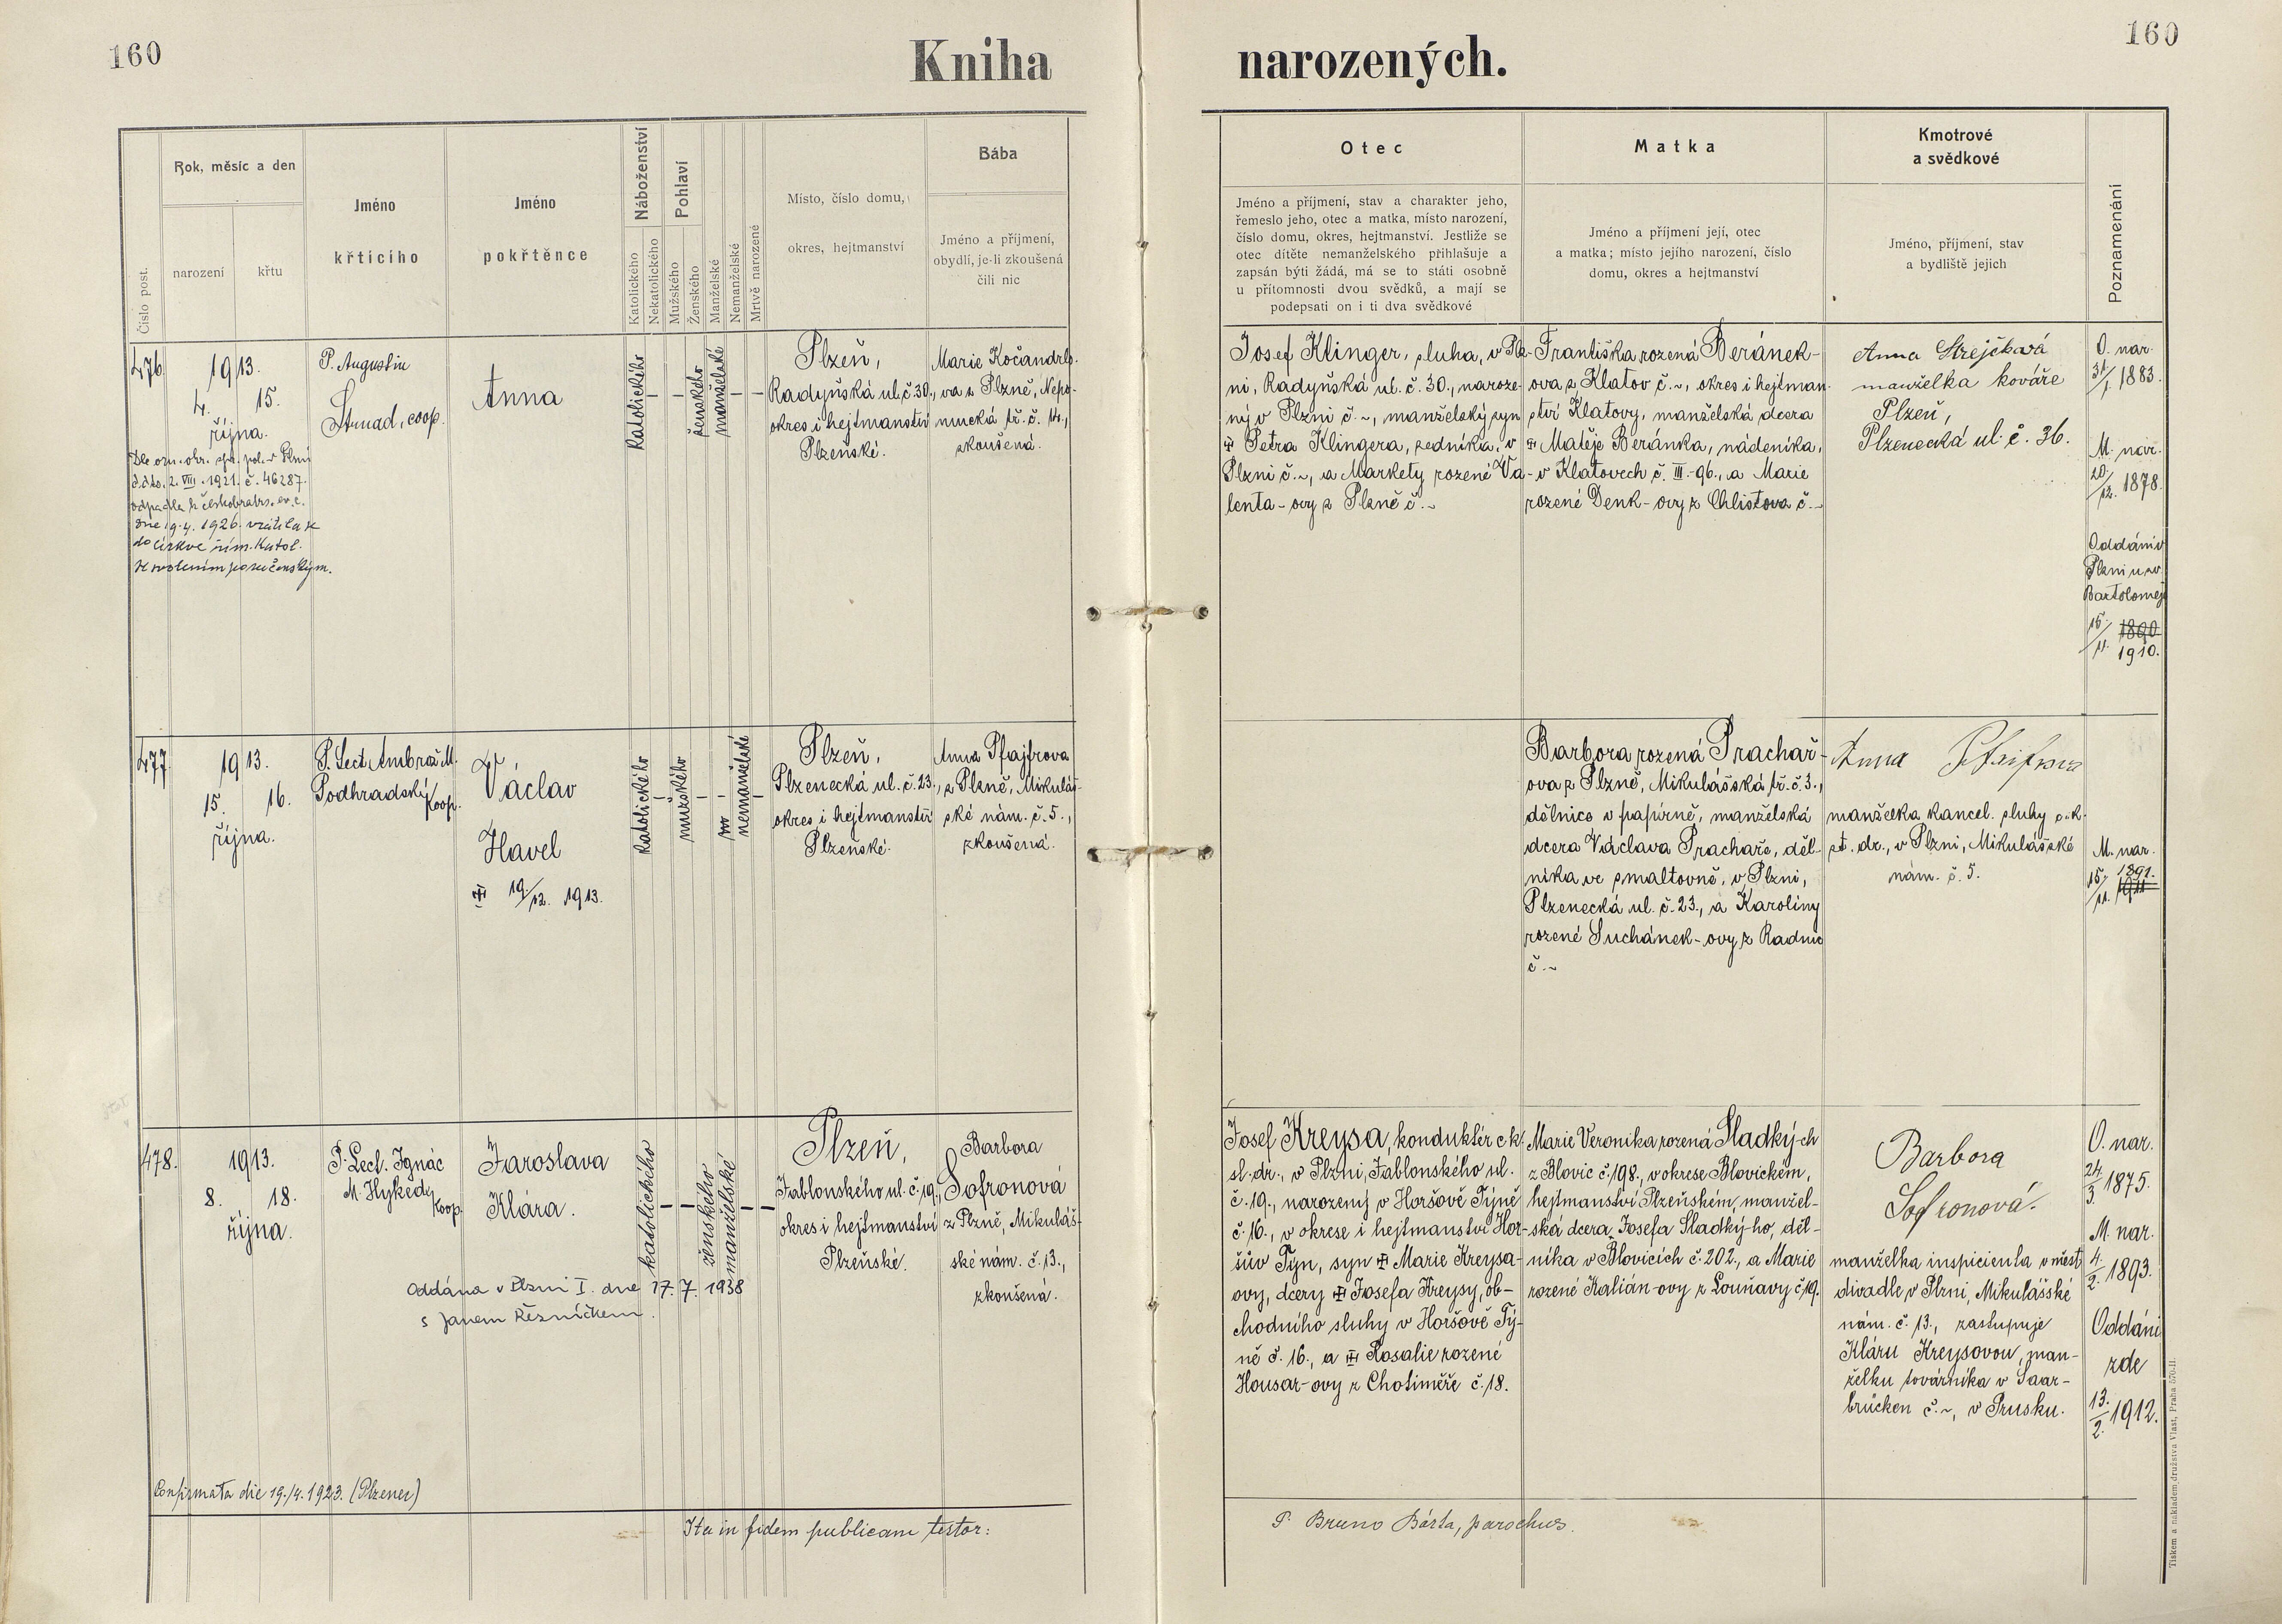 160
Kniha
narozených.
160
Číslo post.
Rok, měsíc a den
narození
křtu
Jméno
křtícího
Jméno
pokřtěnce
Náboženství
Katolického
Nekatolického
Pohlaví
Mužského
Ženského
Manželské
Nemanželské
Mrtvě narozené
Místo, číslo domu,
okres, hejtmanství
Bába
Jméno a příjmení,
obydlí, je-li zkoušená
čili nic
Otec
Jméno a příjmení, stav a charakter jeho,
řemeslo jeho, otec a matka, místo narození,
číslo domu, okres, hejtmanství. Jestliže se
otec dítěte nemanželského přihlašuje a
zapsán býti žádá, má se to státi osobně
u přítomnosti dvou svědků, a mají se
podepsati on i ti dva svědkové
Matka
Jméno a příjmení její, otec
a matka; místo jejího narození, číslo
domu, okres a hejtmanství
Kmotrové
a svědkové
Jméno, příjmení, stav
a bydliště jejich
Poznamenání
476
1913.
4. 15.
října.
Dle ozn. okr. spr. pol. v Plzni
ddto. 2. VIII. 1921. č. 46287.
odpadla k českobratrs. ev. c.
dne 9. 4. 1926. vrátila se
do církve řím. katol.
P. Augustin
Strnad, coop.
Anna
katolického
ženského
manželské
Plzeň,
Radyňská ul. č. 30.,
okres i hejtmanství
Plzeňské.
Marie Kočandrlo-
va z Plzně, Nepo-
mucká tř. č. 14.,
zkoušená.
Josef Klinger, sluha, v Plz-
ni, Radyňská ul. č. 30., naroze-
ný v Plzni č. ~, manželský syn
Petra Klingera, zedníka, v
Plzni č. ~, a Markety rozené Va-
lenta-ovy z Plzně č. ~
Františka rozená Beránek-
ova z Klatov č. ~, okres i hejtman-
ství Klatovy, manželská dcera
Matěje Beránka, nádeníka,
v Klatovech č. III.-96., a Marie
rozené Denk-ovy z Chlistova č. ~
Anna Strejčková
manželka kováře
Plzeň,
Plzenecká ul. č. 36.
O. nar.
31/1. 1883.
M. nar.
20/12. 1878.
Oddáni v
Plzni u sv.
Bartoloměj
15/11. 1890
1910.
477
1913.
15. 16.
října.
P. Lect. Ambrož M.
Podhradský
koop.
Václav
Havel
19/12. 1913.
katolického
mužského
nemanželské
Plzeň,
Plzenecká ul. č. 23.,
okres i hejtmanství
Plzeňské.
Anna Pfajfrova
z Plzně, Mikuláš-
ské nám. č. 5.,
zkoušená.
Barbora rozená Prachař-
ova z Plzně, Mikulášská tř. č. 3.,
dělnice v papírně, manželská
dcera Václava Prachaře, děl-
níka ve smaltovně, v Plzni,
Plzenecká ul. č. 23., a Karoliny
rozené Suchánek-ovy z Radnic
č. ~
Anna Pfaifrova
manželka kancel. sluhy c. k.
st. dr., v Plzni, Mikulášské
nám. č. 5.
M. nar.
15/11. 1891.
1911
478.
1913.
8. 18.
října.
P. Lect. Ignác
M. Hykeda
koop.
Jaroslava
Klára.
Oddána v Plzni I. dne 17. 7. 1938
s Janem Řezníčkem.
katolického
ženského
manželské
Plzeň,
Jablonského ul. č. 19.,
okres i hejtmanství
Plzeňské.
Barbora
Sofronová
z Plzně, Mikuláš-
ské nám. č. 13.,
zkoušená.
Josef Kreysa, konduktér c. k.
st. dr., v Plzni, Jablonského ul.
č. 19., narozený v Horšově Týně
č. 16., v okrese i hejtmanství Hor-
šův Týn, syn Marie Kreysa-
ovy, dcery Josefa Kreysy, ob-
chodního sluhy v Horšově Tý-
ně č. 16., a Rosalie rozené
Housar-ovy z Chotiměře č. 18.
Marie Veronika rozená Sladký-ch
z Blovic č. 198., v okrese Blovickém,
hejtmanství Plzeňském, manžel-
ská dcera Josefa Sladký-ho, děl-
níka v Blovicích č. 202., a Marie
rozené Kalián-ovy z Louňavy č. 19.
Barbora
Sofronová.
manželka inspicienta v měst.
divadle v Plzni, Mikulášské
nám. č. 13., zastupuje
Kláru Kreysovou, man-
želku továrníka v Saar-
brücken č. ~, v Prusku.
O. nar.
24/3. 1875.
M. nar.
4/2. 1893.
Oddáni
zde
13/2. 1912.
Confirmata die 19./4. 1923. (Plzenec)
Ita in fidem publicam testor:
P. Bruno Bárta, parochus.
Tiskem a nákladem družstva Vlast, Praha 570-II.